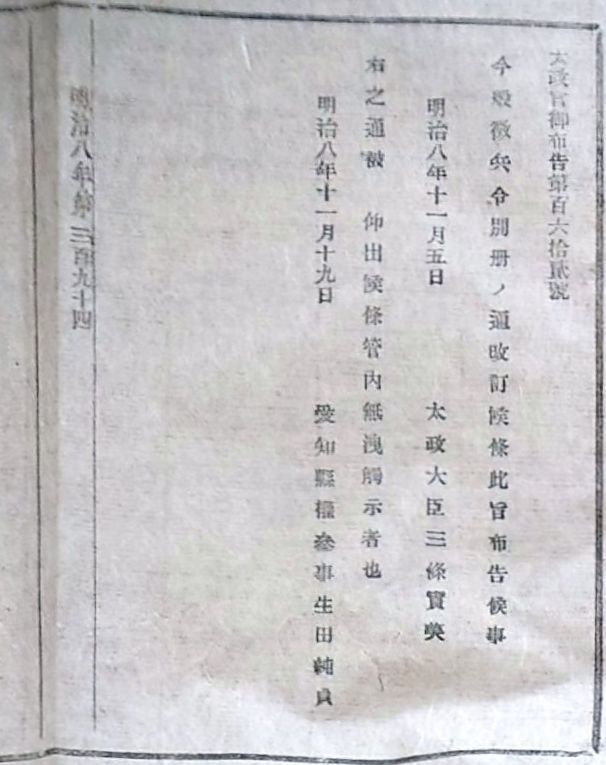 太政官御布告第百六拾貳號
今般徵兵令別册ノ通改訂候條此旨布告候事
明治八年十一月五日 太政大臣三條實美
右之通被 仰出候條管内無洩觸示者也
明治八年十一月十九日 愛知縣權參事生田純貞
明治八年第三百九十四